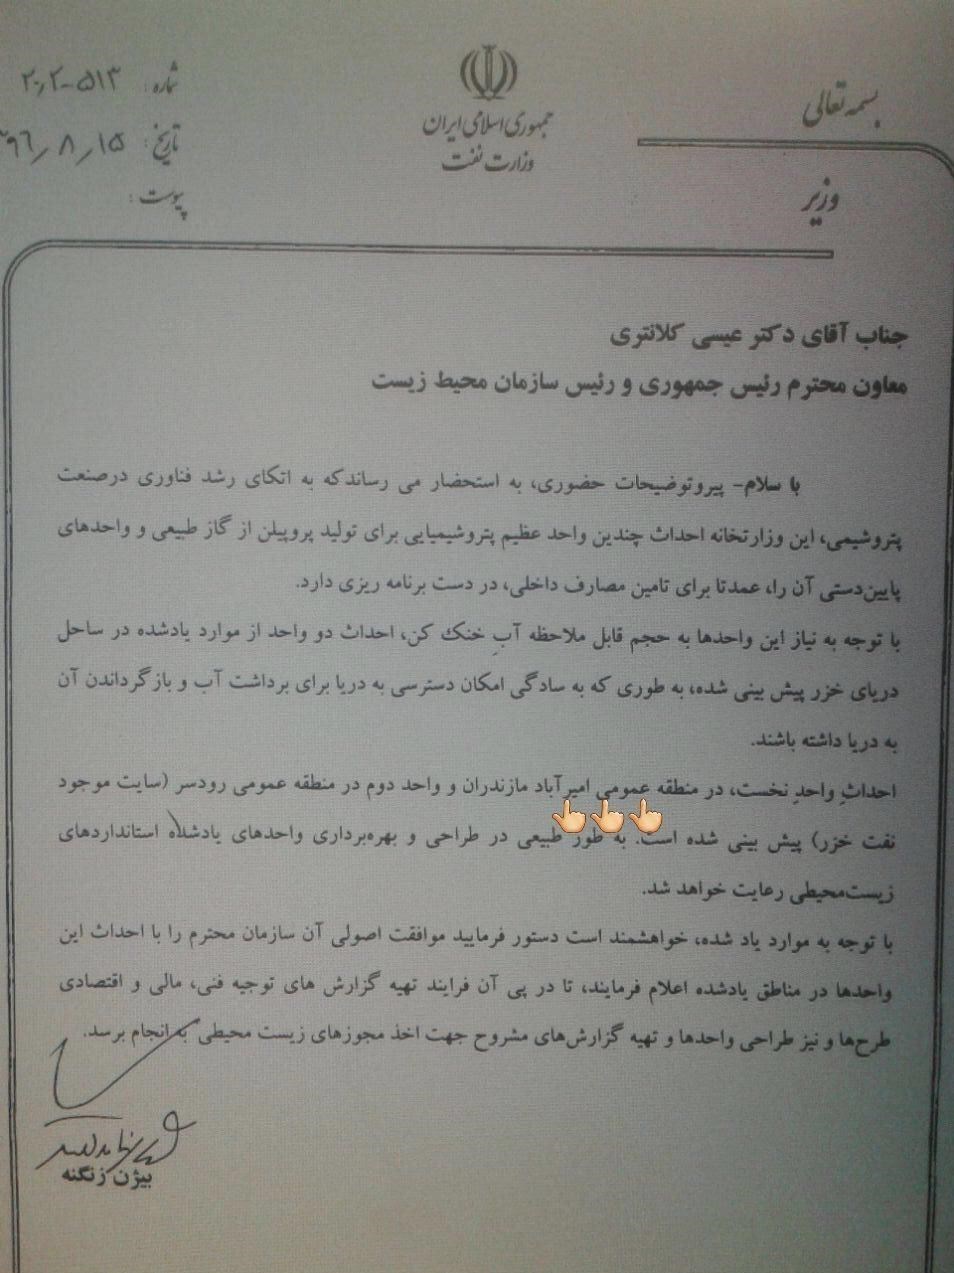 بسمه تعالی
جمهوری اسلامی ایران
وزارت نفت
وزیر
شماره: ۲۰/۲-۵۱۳
تاریخ: ۹۶/۸/۱۵
پیوست:
جناب آقای دکتر عیسی کلانتری
معاون محترم رئیس جمهوری و رئیس سازمان محیط زیست
با سلام- پیروتوضیحات حضوری، به استحضار می رساندکه به اتکای رشد فناوری درصنعت
پتروشیمی، این وزارتخانه احداث چندین واحد عظیم پتروشیمیایی برای تولید پروپیلن از گاز طبیعی و واحدهای
پایین‌دستی آن را، عمدتا برای تامین مصارف داخلی، در دست برنامه ریزی دارد.
با توجه به نیاز این واحدها به حجم قابل ملاحظه آبِ خنک کن، احداث دو واحد از موارد یادشده در ساحل
دریای خزر پیش بینی شده، به طوری که به سادگی امکان دسترسی به دریا برای برداشت آب و بازگرداندن آن
به دریا داشته باشند.
احداثِ واحدِ نخست، در منطقه عمومی امیرآباد مازندران و واحد دوم در منطقه عمومی رودسر (سایت موجود
نفت خزر) پیش بینی شده است. به طور طبیعی در طراحی و بهره‌برداری واحدهای یادشده استانداردهای
زیست‌محیطی رعایت خواهد شد.
با توجه به موارد یاد شده، خواهشمند است دستور فرمایید موافقت اصولی آن سازمان محترم را با احداث این
واحدها در مناطق یادشده اعلام فرمایند، تا در پی آن فرایند تهیه گزارش های توجیه فنی، مالی و اقتصادی
طرح‌ها و نیز طراحی واحدها و تهیه گزارش‌های مشروح جهت اخذ مجوزهای زیست محیطی به انجام برسد.
بیژن زنگنه